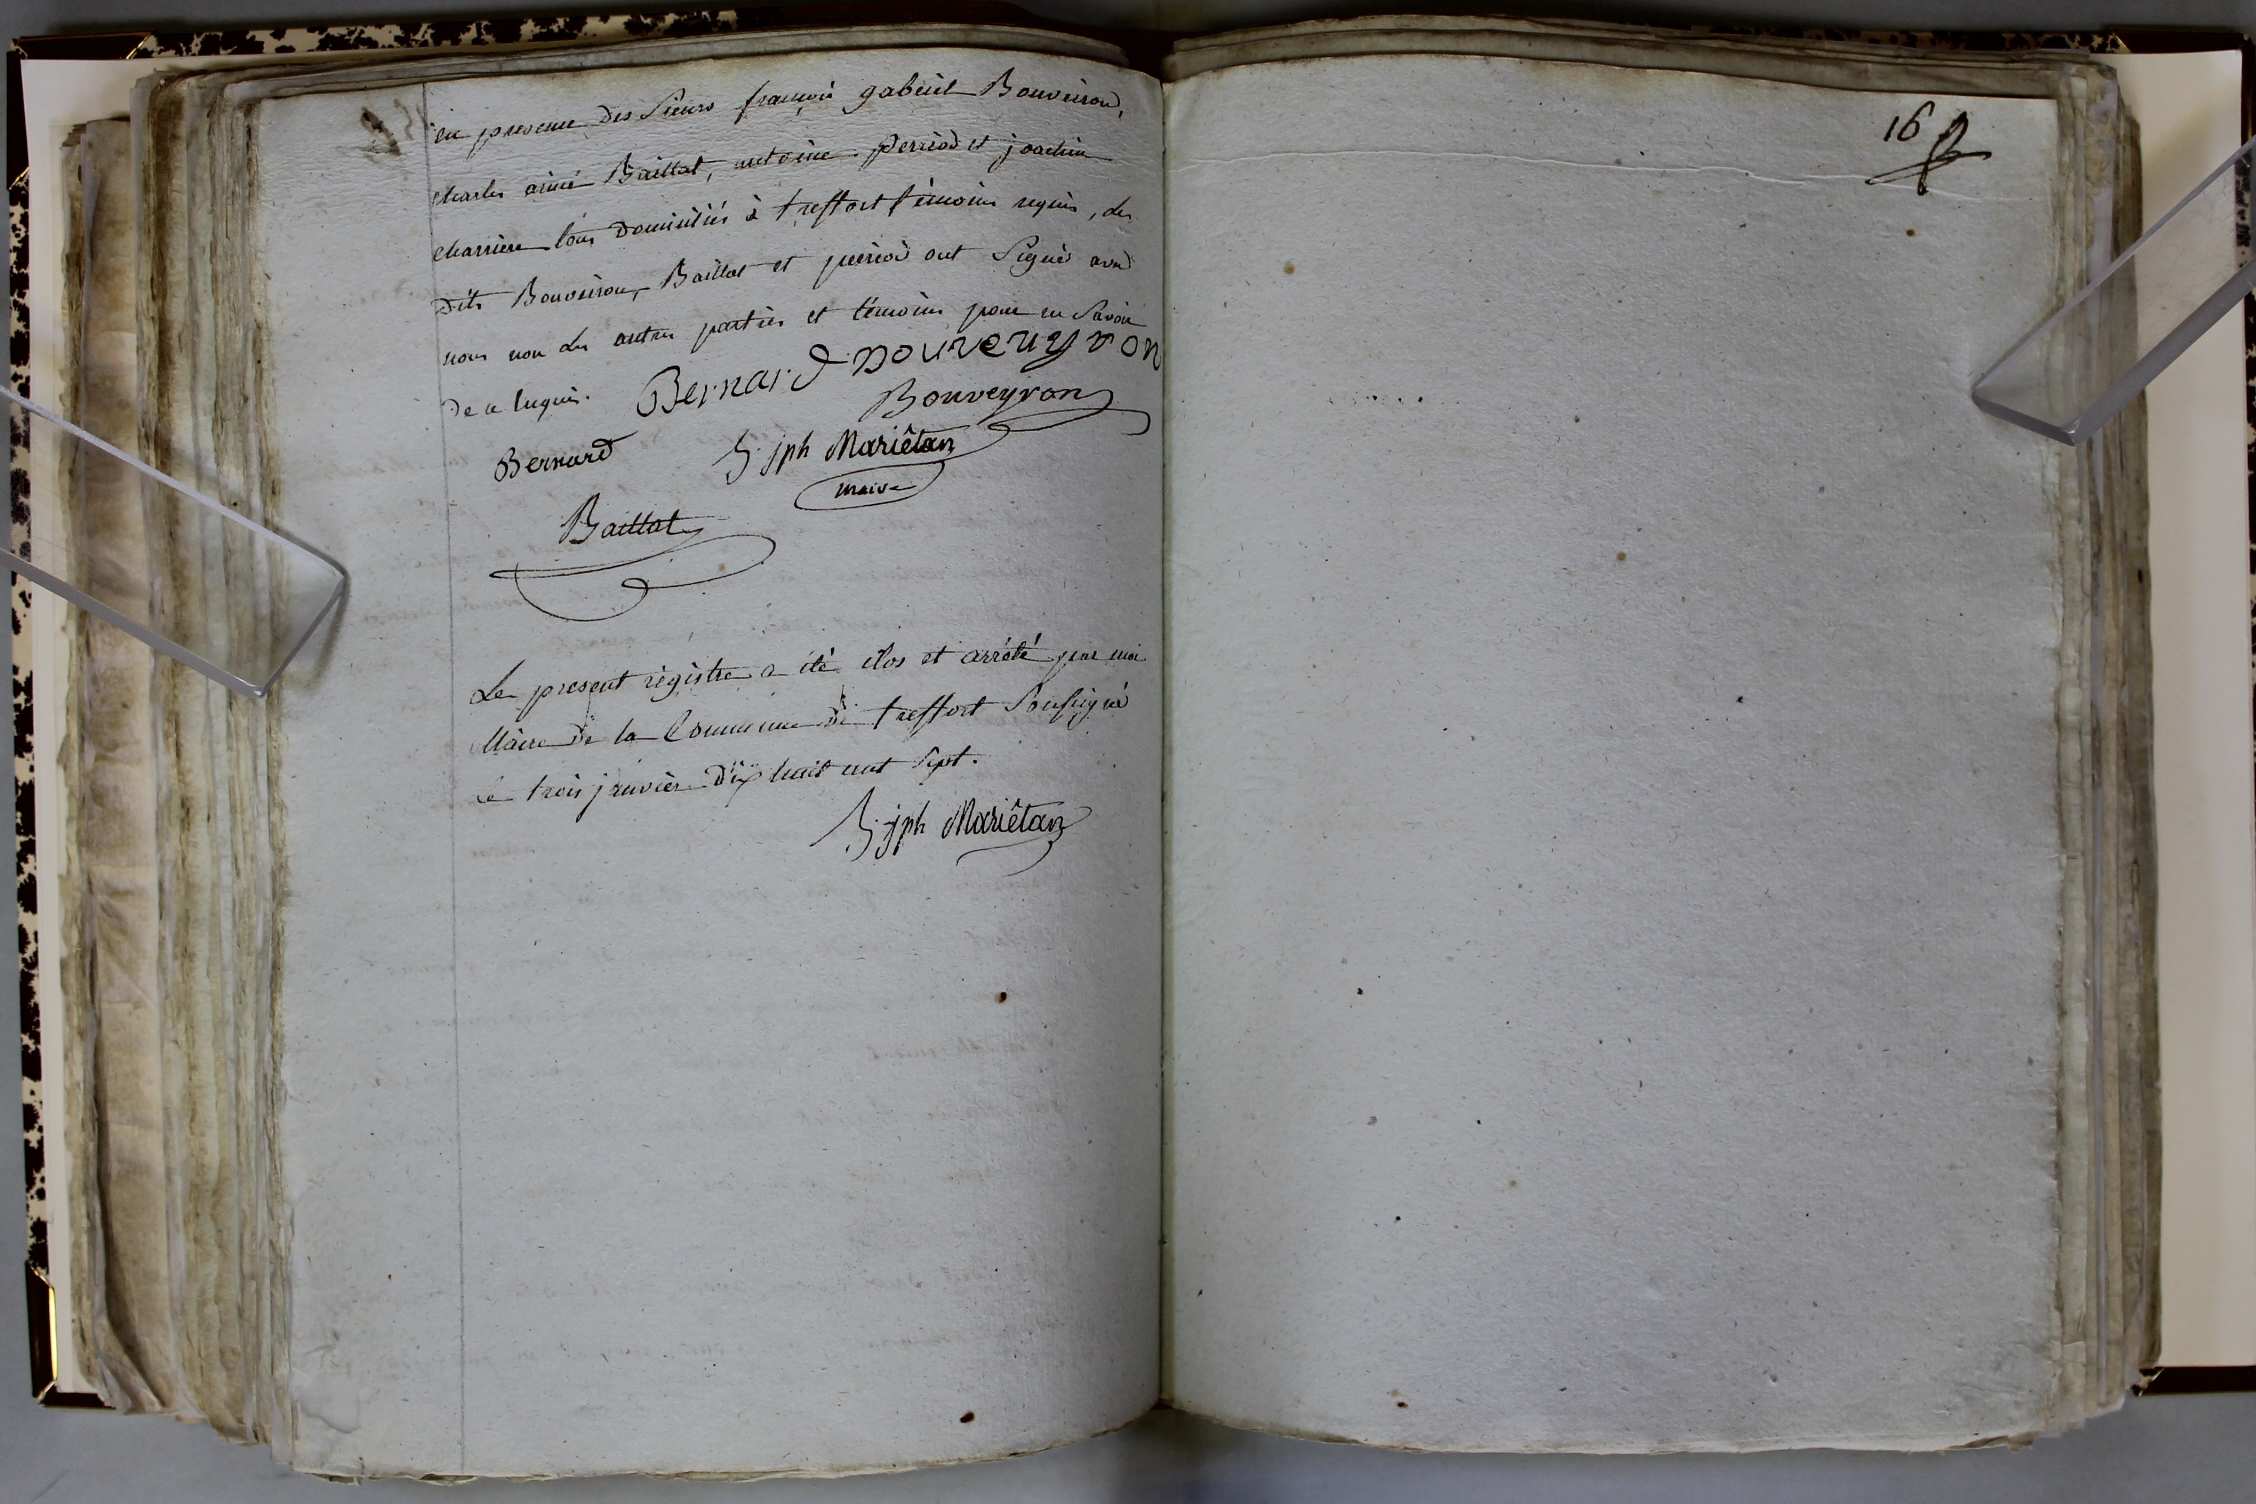 en presence des Sieurs françois gabriel Bouveiron,
charles aimé Baillat, antoine perriod et joachim
charriere tous domiciliés à treffort témoins requis, les
dits Bouveiron, Baillat et perriod ont Signés avec
nous non les autres parties et témoins pour ne Savoir
de ce Enquis. Bernard Bouveuyron
Bouveyron
Bernard jph Mariêtan
maire
Baillat
Le present régistre a été clos et arrété par moi
Maire de la Commune de treffort Soussigné
Le trois janvier dix huit cent Sept.
jph Mariêtan
16